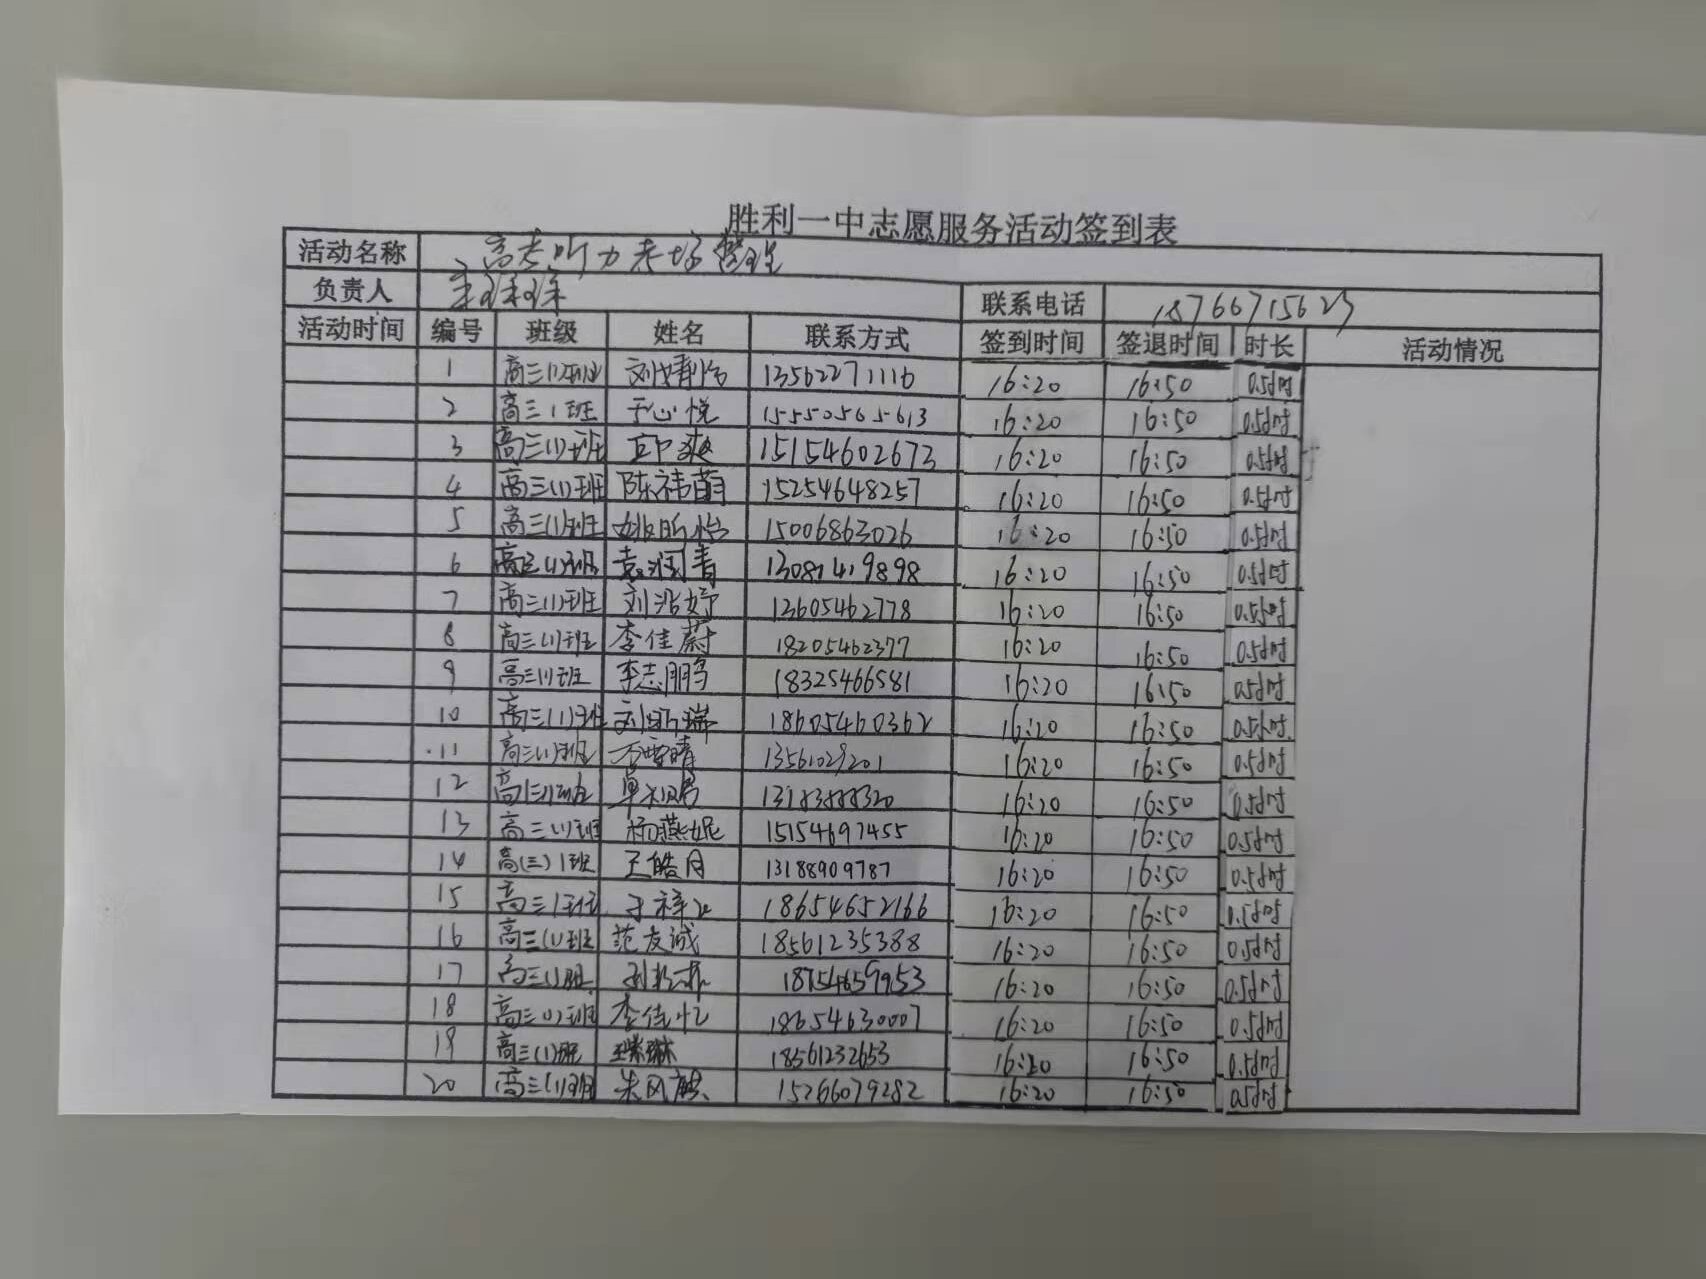 胜利一中志愿服务活动签到表
活动名称 高考听力考场整理
负责人 联系电话 18766715623
活动时间 编号 班级 姓名 联系方式 签到时间 签退时间 时长 活动情况
1 高三(1)班 刘婧怡 13562271116 16:20 16:50 0.5小时
2 高三1班 于心悦 15550565613 16:20 16:50 0.5小时
3 高三(1)班 爽 15154602673 16:20 16:50 0.5小时
4 高三(1)班 陈祎萌 15254648257 16:20 16:50 0.5小时
5 高三(1)班 姚昕怡 15006863026 16:20 16:50 0.5小时
6 高三(1)班 袁润青 16:20 16:50 0.5小时
7 高三(1)班 刘浩妤 13605462778 16:20 16:50 0.5小时
8 高三(1)班 李佳蔚 18205462377 16:20 16:50 0.5小时
9 高三(1)班 李志鹏 18325466581 16:20 16:50 0.5小时
10 高三(1)班 刘昕瑞 18605460362 16:20 16:50 0.5小时
11 高三(1)班 16:20 16:50 0.5小时
12 高(三)1班 13183888320 16:20 16:50 0.5小时
13 高三(1)班 杨燕妮 15154697455 16:20 16:50 0.5小时
14 高(三)1班 王皓月 13188909787 16:20 16:50 0.5小时
15 高三1班 18654652166 16:20 16:50 0.5小时
16 高三(1)班 范友诚 18561235388 16:20 16:50 0.5小时
17 高三(1)班 18754659953 16:20 16:50 0.5小时
18 高三(1)班 李佳忆 18654630007 16:20 16:50 0.5小时
19 高三(1)班 18561232653 16:20 16:50 0.5小时
20 高三(1)班 朱风麒 15266079282 16:20 16:50 0.5小时